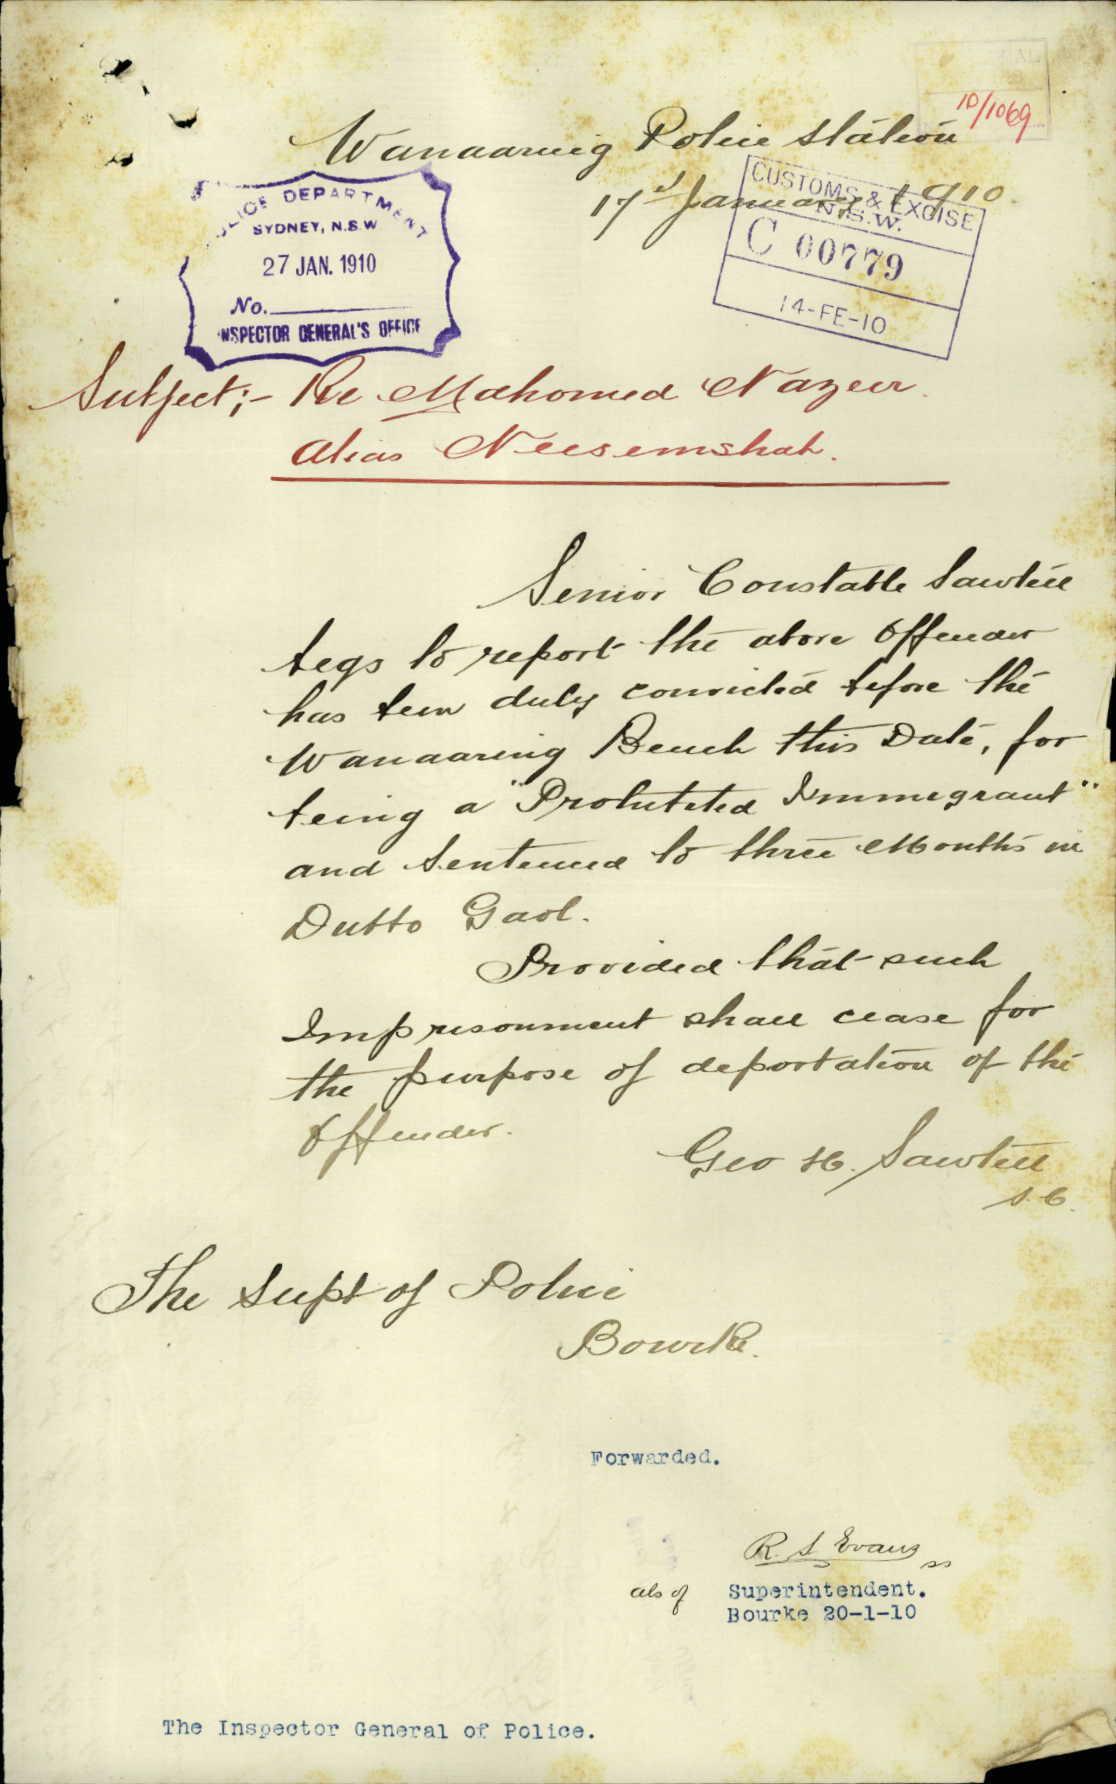 10/1069
Wanaaring Police Station
17th January 1910.
POLICE DEPARTMENT
SYDNEY, N.S.W
27 JAN. 1910
No.
INSPECTOR GENERAL'S OFFICE
CUSTOMS & EXCISE
N.S.W.
C 00779
14-FE-10
Subject;- Re Mahomed Nazeer.
Alias Neesemshah.
Senior Constable Sawtell
begs to report the above Offender
has been duly convicted before the
Wanaaring Bench this Date, for
being a "Prohibited Immegrant"
and Sentenced to three Months in
Dubbo Gaol.
Provided that such
Imprisonment shall cease for
the purpose of deportation of the
Offender.
Geo H. Sawtell
S.C.
The Supt of Police
Bourke.
Forwarded.
R. S Evans ss
abs of Superintendent.
Bourke 20-1-10
The Inspector General of Police.